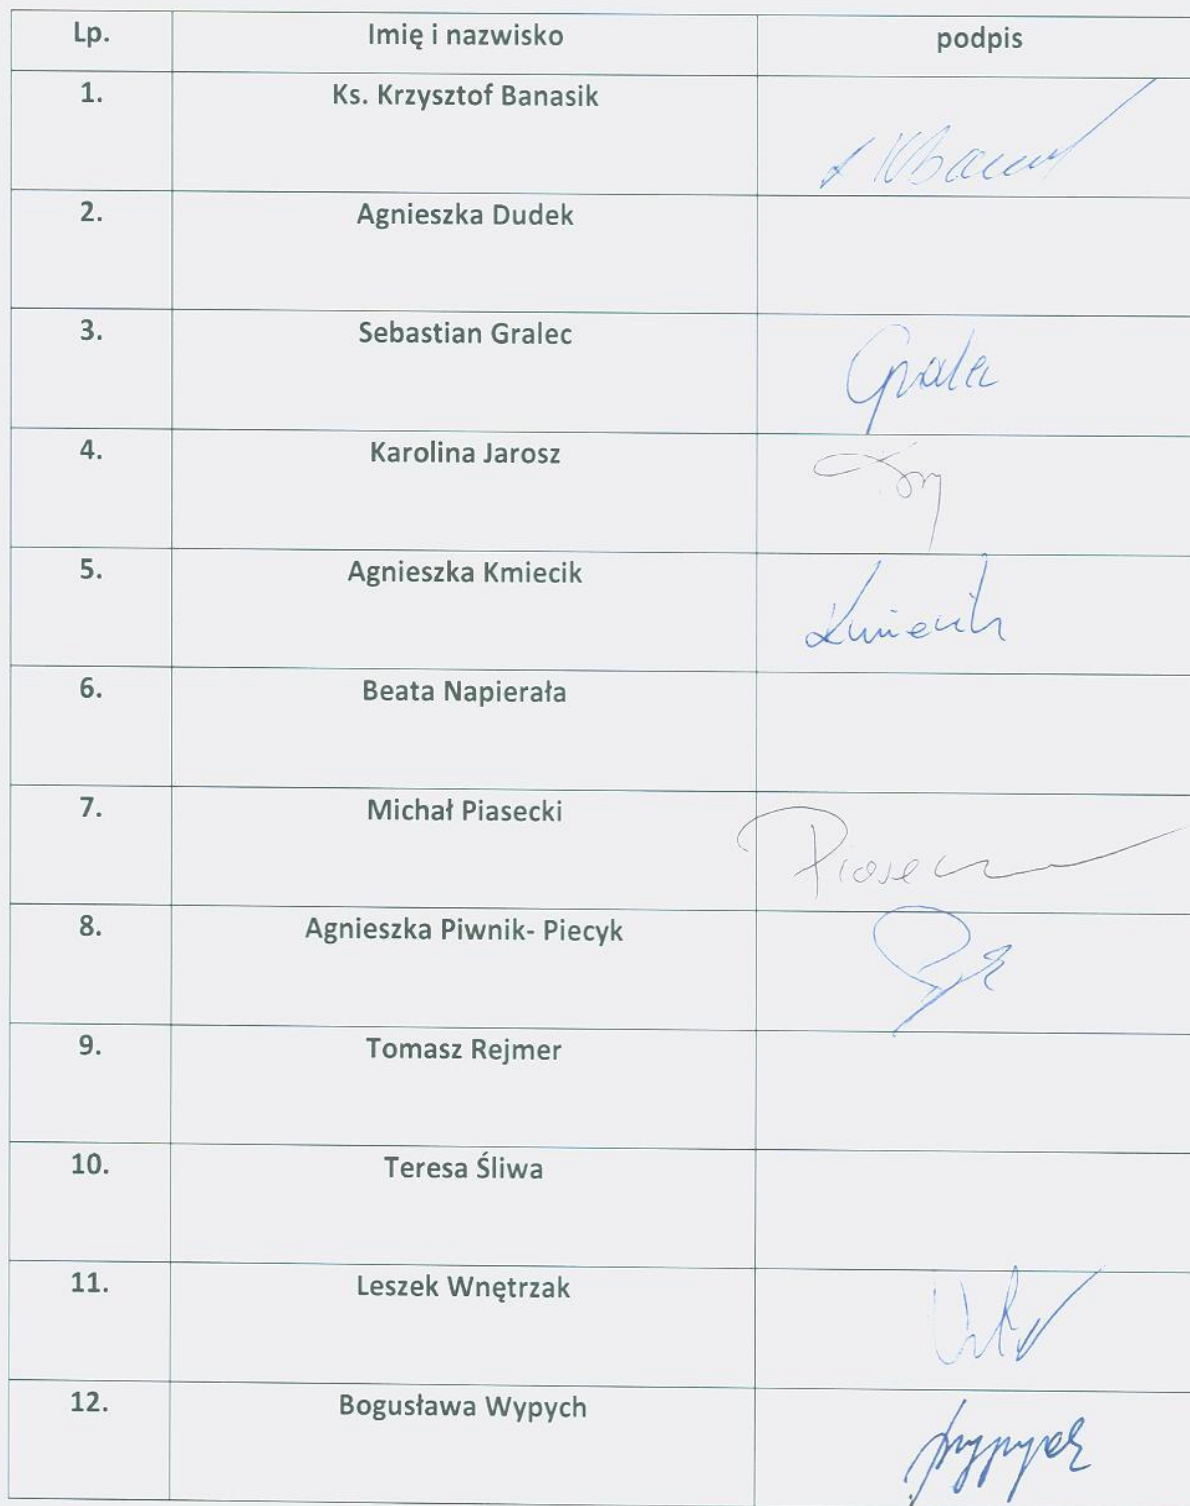 Lp. Imię i nazwisko podpis
1. Ks. Krzysztof Banasik
2. Agnieszka Dudek
3. Sebastian Gralec Gralec
4. Karolina Jarosz
5. Agnieszka Kmiecik Kmiecik
6. Beata Napierała
7. Michał Piasecki
8. Agnieszka Piwnik- Piecyk
9. Tomasz Rejmer
10. Teresa Śliwa
11. Leszek Wnętrzak
12. Bogusława Wypych Wypych